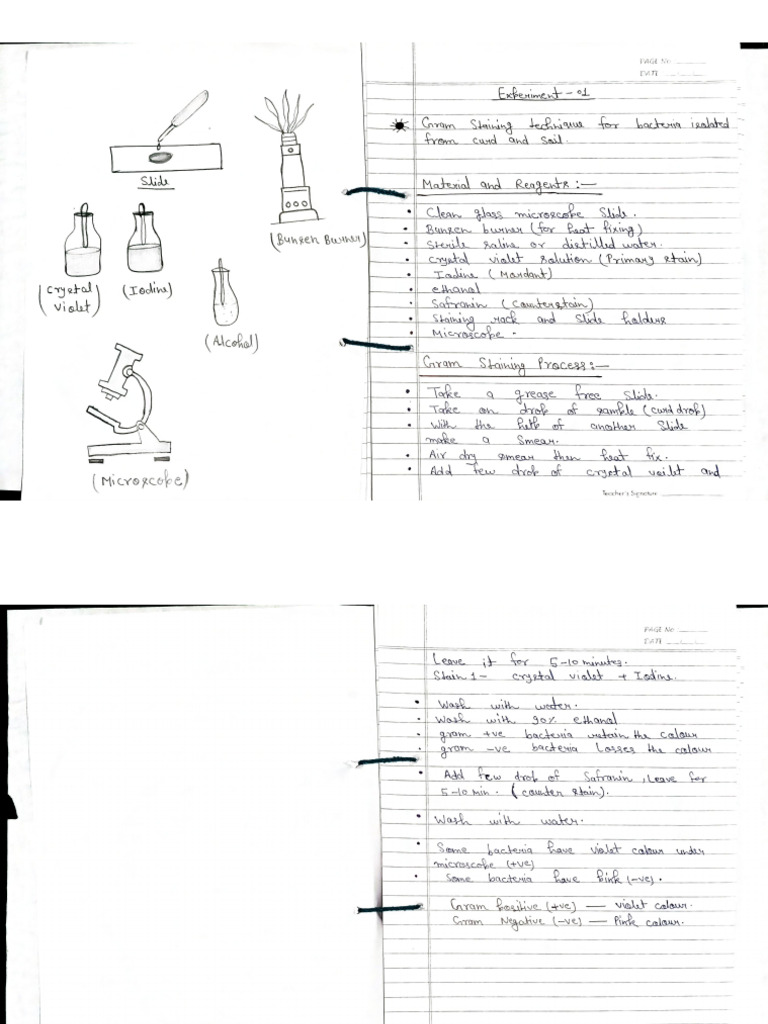 Slide
(Bunsen Burner)
(Crystal
Violet)
(Iodine)
(Alcohol)
(Microscope)
PAGE No.
DATE
Experiment - 01
Gram Staining technique for bacteria isolated
from curd and soil.
Material and Reagents :-
• Clean glass microscope Slide.
• Bunsen burner (for heat fixing)
• Sterile saline or distilled water.
• Crystal violet solution (Primary stain)
• Iodine (Mordant)
• ethanal
• Safranin (counterstain)
• Staining rack and slide holders
• Microscope.
Gram Staining Process :-
• Take a grease free slide.
• Take on drop of sample (curd drop)
• With the help of another slide
make a smear.
• Air dry smear then heat fix.
• Add few drop of crystal voilet and
Teacher's Signature
PAGE No.
DATE
Leave it for 5-10 minutes.
Stain 1 - crystal violet + Iodine.
• Wash with water.
• Wash with 90% ethanal
• gram +ve bacteria retain the colour
• gram -ve bacteria Losses the colour
• Add few drop of Safranin, Leave for
5-10 min. (counter stain).
• Wash with water.
• Some bacteria have violet colour under
microscope (+ve)
• Some bacteria have pink (-ve).
Gram positive (+ve) — violet colour.
Gram Negative (-ve) — Pink colour.